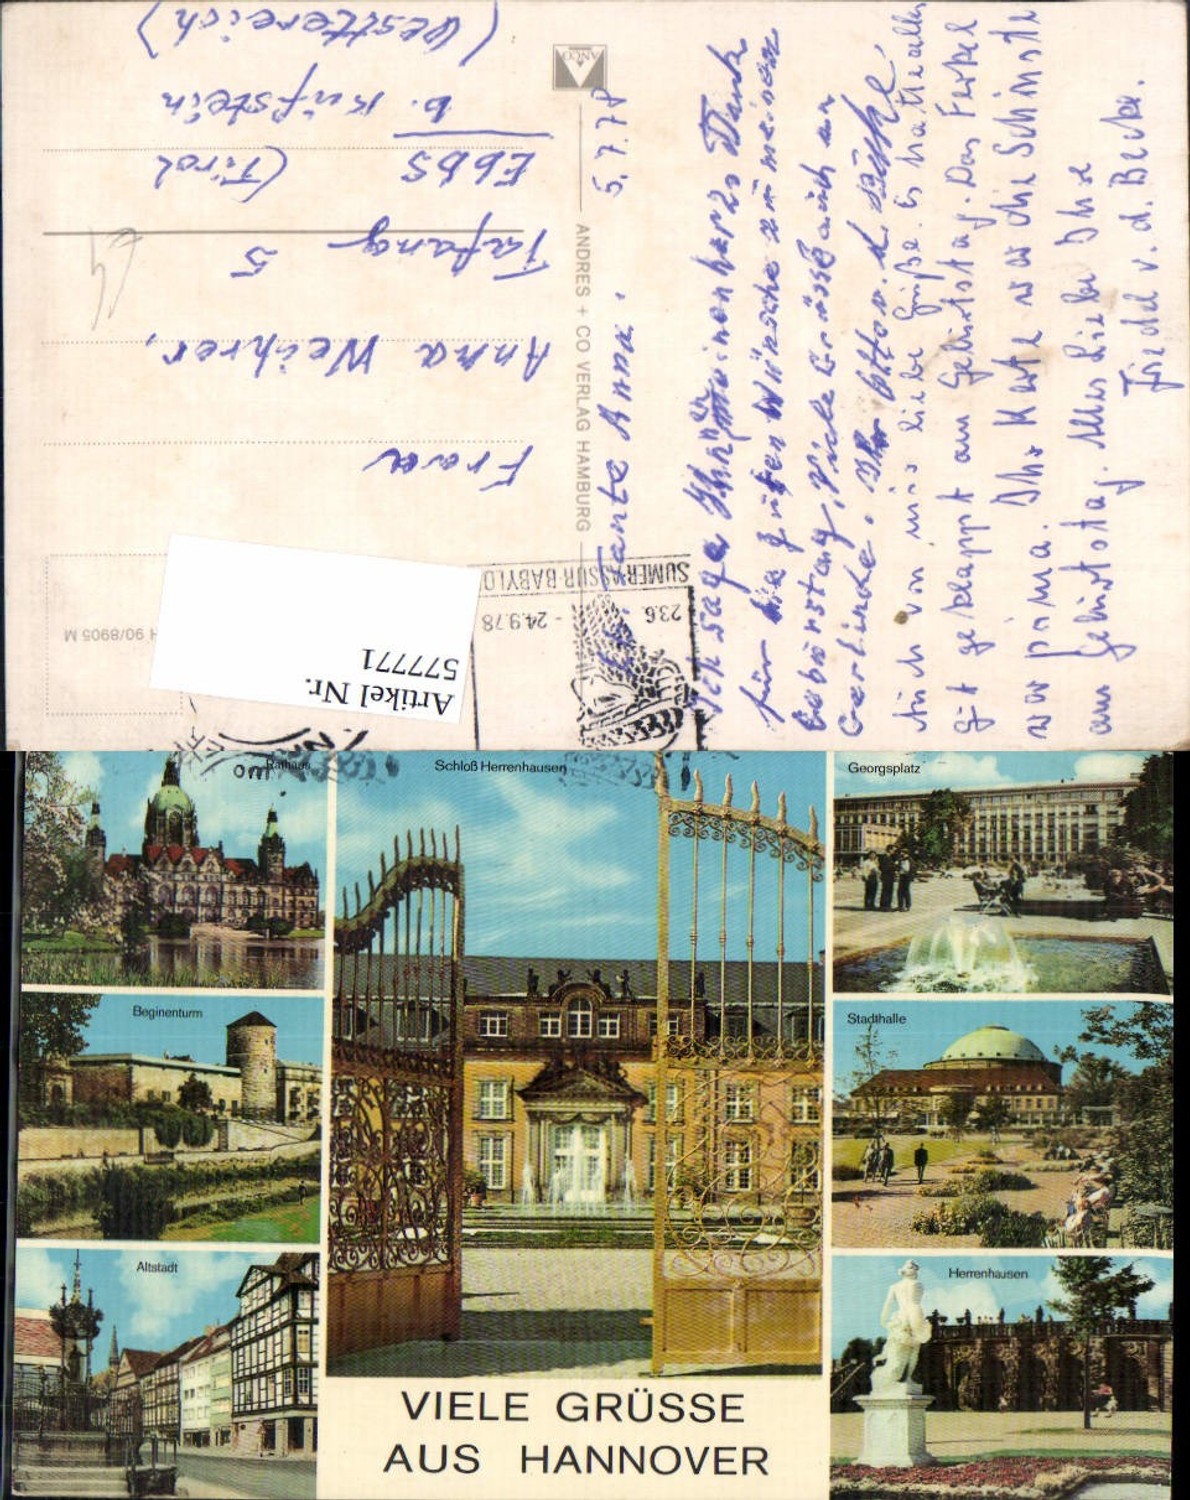 Artikel Nr.
577771
H 90/8905 M
SUMER ASSUR BABYLO
23.6. - 24.9.78
Frau
Anna Weihrer,
Tafang 5
Ebbs (Tirol
b. Kufstein
(Oesterreich)
ANDRES + CO VERLAG HAMBURG
ANCO
5.7.78
Tante Anna.
Ich sage Ihnen meinen herzl. Dank
für die guten Wünsche zu meinem
Geburtstag. Viele Grüsse auch an
Gerlinde. Ihr Otto u. d. Küche
Auch von mir liebe Grüße. Es hat alles
gut geklappt am Geburtstag. Das Ferkel
war prima. Ihre Karte war die Schönste
am Geburtstag. Alles Liebe Ihre
Friedel v. d. Becke.
Rathaus
Schloß Herrenhausen
Georgsplatz
Beginenturm
Stadthalle
Altstadt
Herrenhausen
VIELE GRÜSSE
AUS HANNOVER